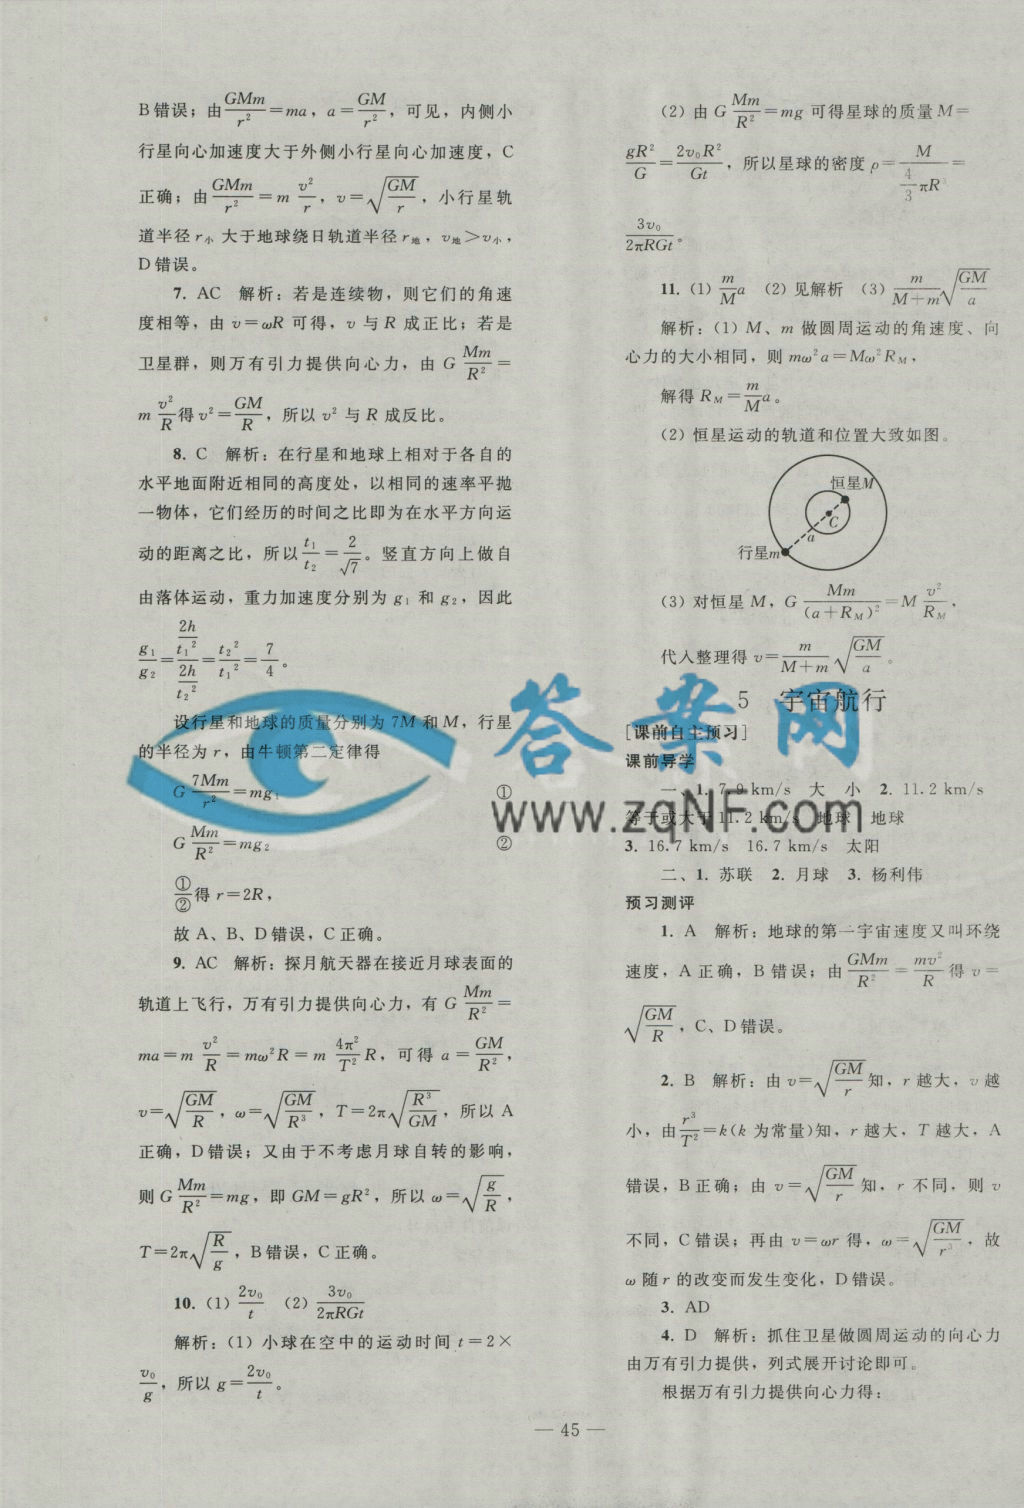 B错误；由GMm/r²=ma，a=GM/r²，可见，内侧小
行星向心加速度大于外侧小行星向心加速度，C
正确；由GMm/r²=m v²/r，v=√(GM/r)，小行星轨
道半径r小大于地球绕日轨道半径r地，v地>v小，
D错误。
7. AC 解析：若是连续物，则它们的角速
度相等，由v=ωR可得，v与R成正比；若是
卫星群，则万有引力提供向心力，由G Mm/R²=
m v²/R得v²=GM/R，所以v²与R成反比。
8. C 解析：在行星和地球上相对于各自的
水平地面附近相同的高度处，以相同的速率平抛
一物体，它们经历的时间之比即为在水平方向运
动的距离之比，所以t₁/t₂=2/√7。竖直方向上做自
由落体运动，重力加速度分别为g₁和g₂，因此
g₁/g₂=(2h/t₁²)/(2h/t₂²)=t₂²/t₁²=7/4。
设行星和地球的质量分别为7M和M，行星
的半径为r，由牛顿第二定律得
G 7Mm/r²=mg₁ ①
G Mm/R²=mg₂ ②
①/②得r=2R，
故A、B、D错误，C正确。
9. AC 解析：探月航天器在接近月球表面的
轨道上飞行，万有引力提供向心力，有G Mm/R²=
ma=m v²/R=mω²R=m 4π²/T² R，可得a=GM/R²，
v=√(GM/R)，ω=√(GM/R³)，T=2π√(R³/GM)，所以A
正确，D错误；又由于不考虑月球自转的影响，
则G Mm/R²=mg，即GM=gR²，所以ω=√(g/R)，
T=2π√(R/g)，B错误，C正确。
10. (1) 2v₀/t (2) 3v₀/2πRGt
解析：(1)小球在空中的运动时间t=2×
v₀/g，所以g=2v₀/t。
(2)由G Mm/R²=mg可得星球的质量M=
gR²/G=2v₀R²/Gt，所以星球的密度ρ=M/(4/3 πR³)=
3v₀/2πRGt。
11. (1) m/M a (2)见解析 (3) m/(M+m) √(GM/a)
解析：(1)M、m做圆周运动的角速度、向
心力的大小相同，则mω²a=Mω²R_M，
解得R_M=m/M a。
(2)恒星运动的轨道和位置大致如图。
恒星M
C
a
行星m
(3)对恒星M，G Mm/(a+R_M)²=M v²/R_M，
代入整理得v=m/(M+m) √(GM/a)。
5 宇宙航行
[课前自主预习]
课前导学
一、1. 7.9 km/s 大 小 2. 11.2 km/s
等于或大于11.2 km/s 地球 地球
3. 16.7 km/s 16.7 km/s 太阳
二、1. 苏联 2. 月球 3. 杨利伟
预习测评
1. A 解析：地球的第一宇宙速度又叫环绕
速度，A正确，B错误；由GMm/R²=mv²/R得v=
√(GM/R)，C、D错误。
2. B 解析：由v=√(GM/r)知，r越大，v越
小，由r³/T²=k(k为常量)知，r越大，T越大，A
错误，B正确；由v=√(GM/r)知，r不同，则v
不同，C错误；再由v=ωr得，ω=√(GM/r³)，故
ω随r的改变而发生变化，D错误。
3. AD
4. D 解析：抓住卫星做圆周运动的向心力
由万有引力提供，列式展开讨论即可。
根据万有引力提供向心力得：
答案网
www.zqNF.com
— 45 —